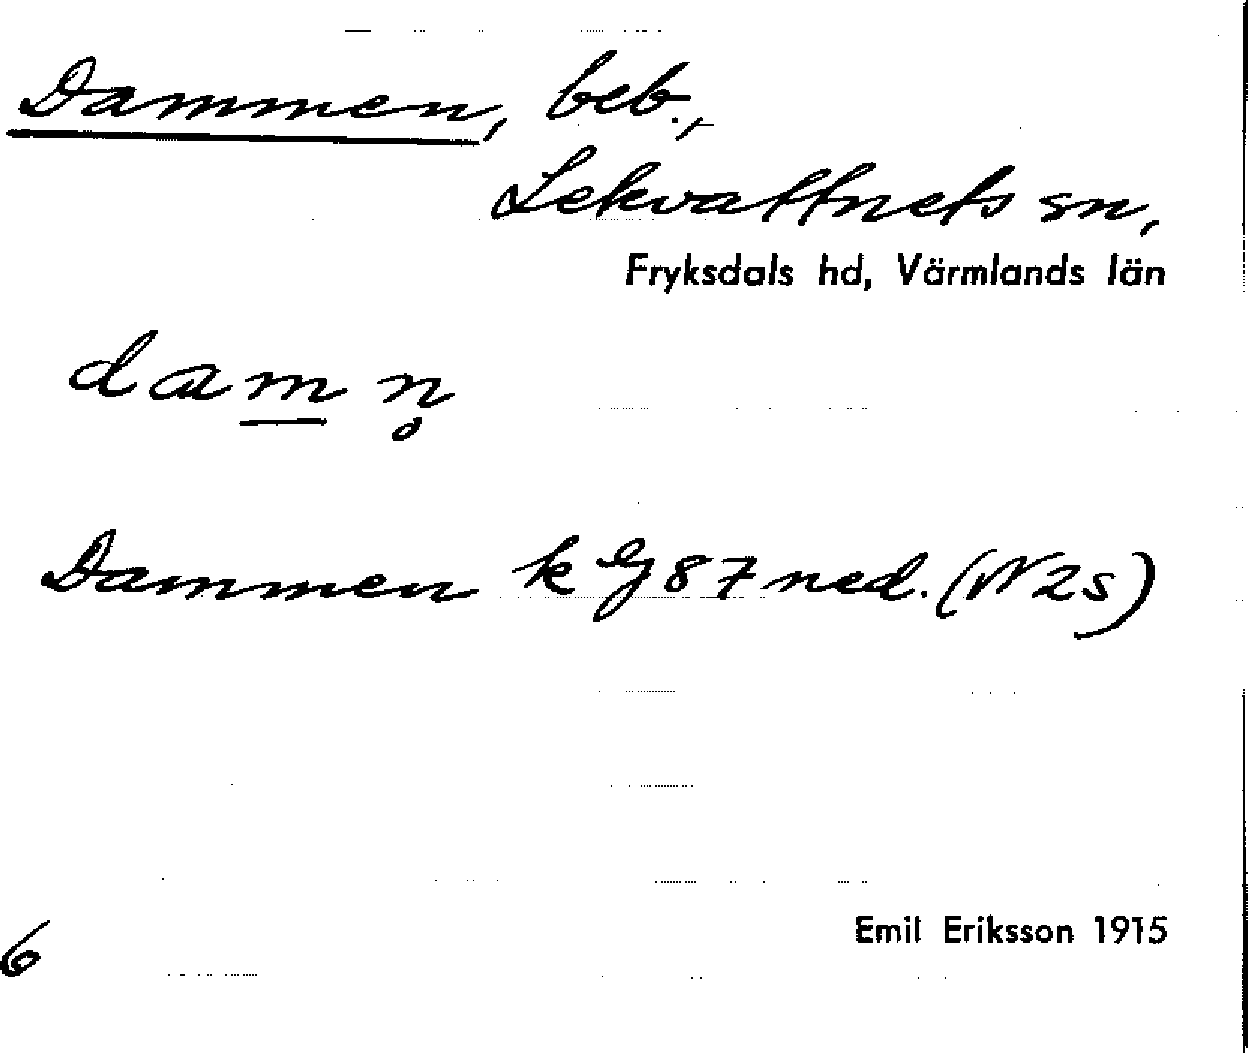 Dammen, beb.,
Lekvattnets sn,
Fryksdals hd, Värmlands län
dam̲ n̥
Dammen k GJ 87 ned. (N 2s)
6
Emil Eriksson 1915